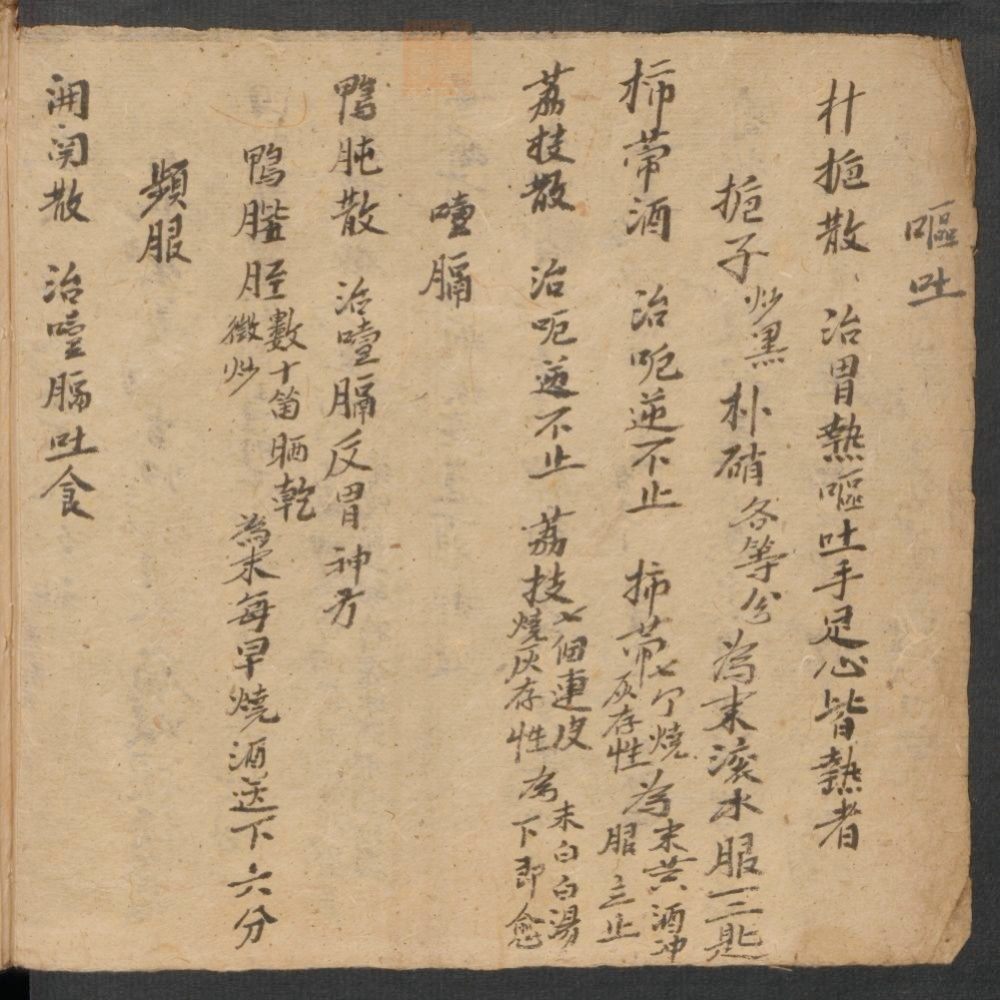 嘔吐
朴梔散 治胃熱嘔吐手足心皆熱者
梔子炒黑 朴硝各等分為末滚水服一二匙
柿蒂酒 治呃逆不止 柿蒂七个燒灰存性為末黄酒冲服立止
荔枝散 治呃逆不止 荔枝七個連皮燒灰存性為末白白湯下即愈
噎膈
鴨肫散 治噎膈反胃神方
鴨 胵數十笛晒乾微炒 為末每早燒酒送下六分
頻服
開関散 治噎膈吐食